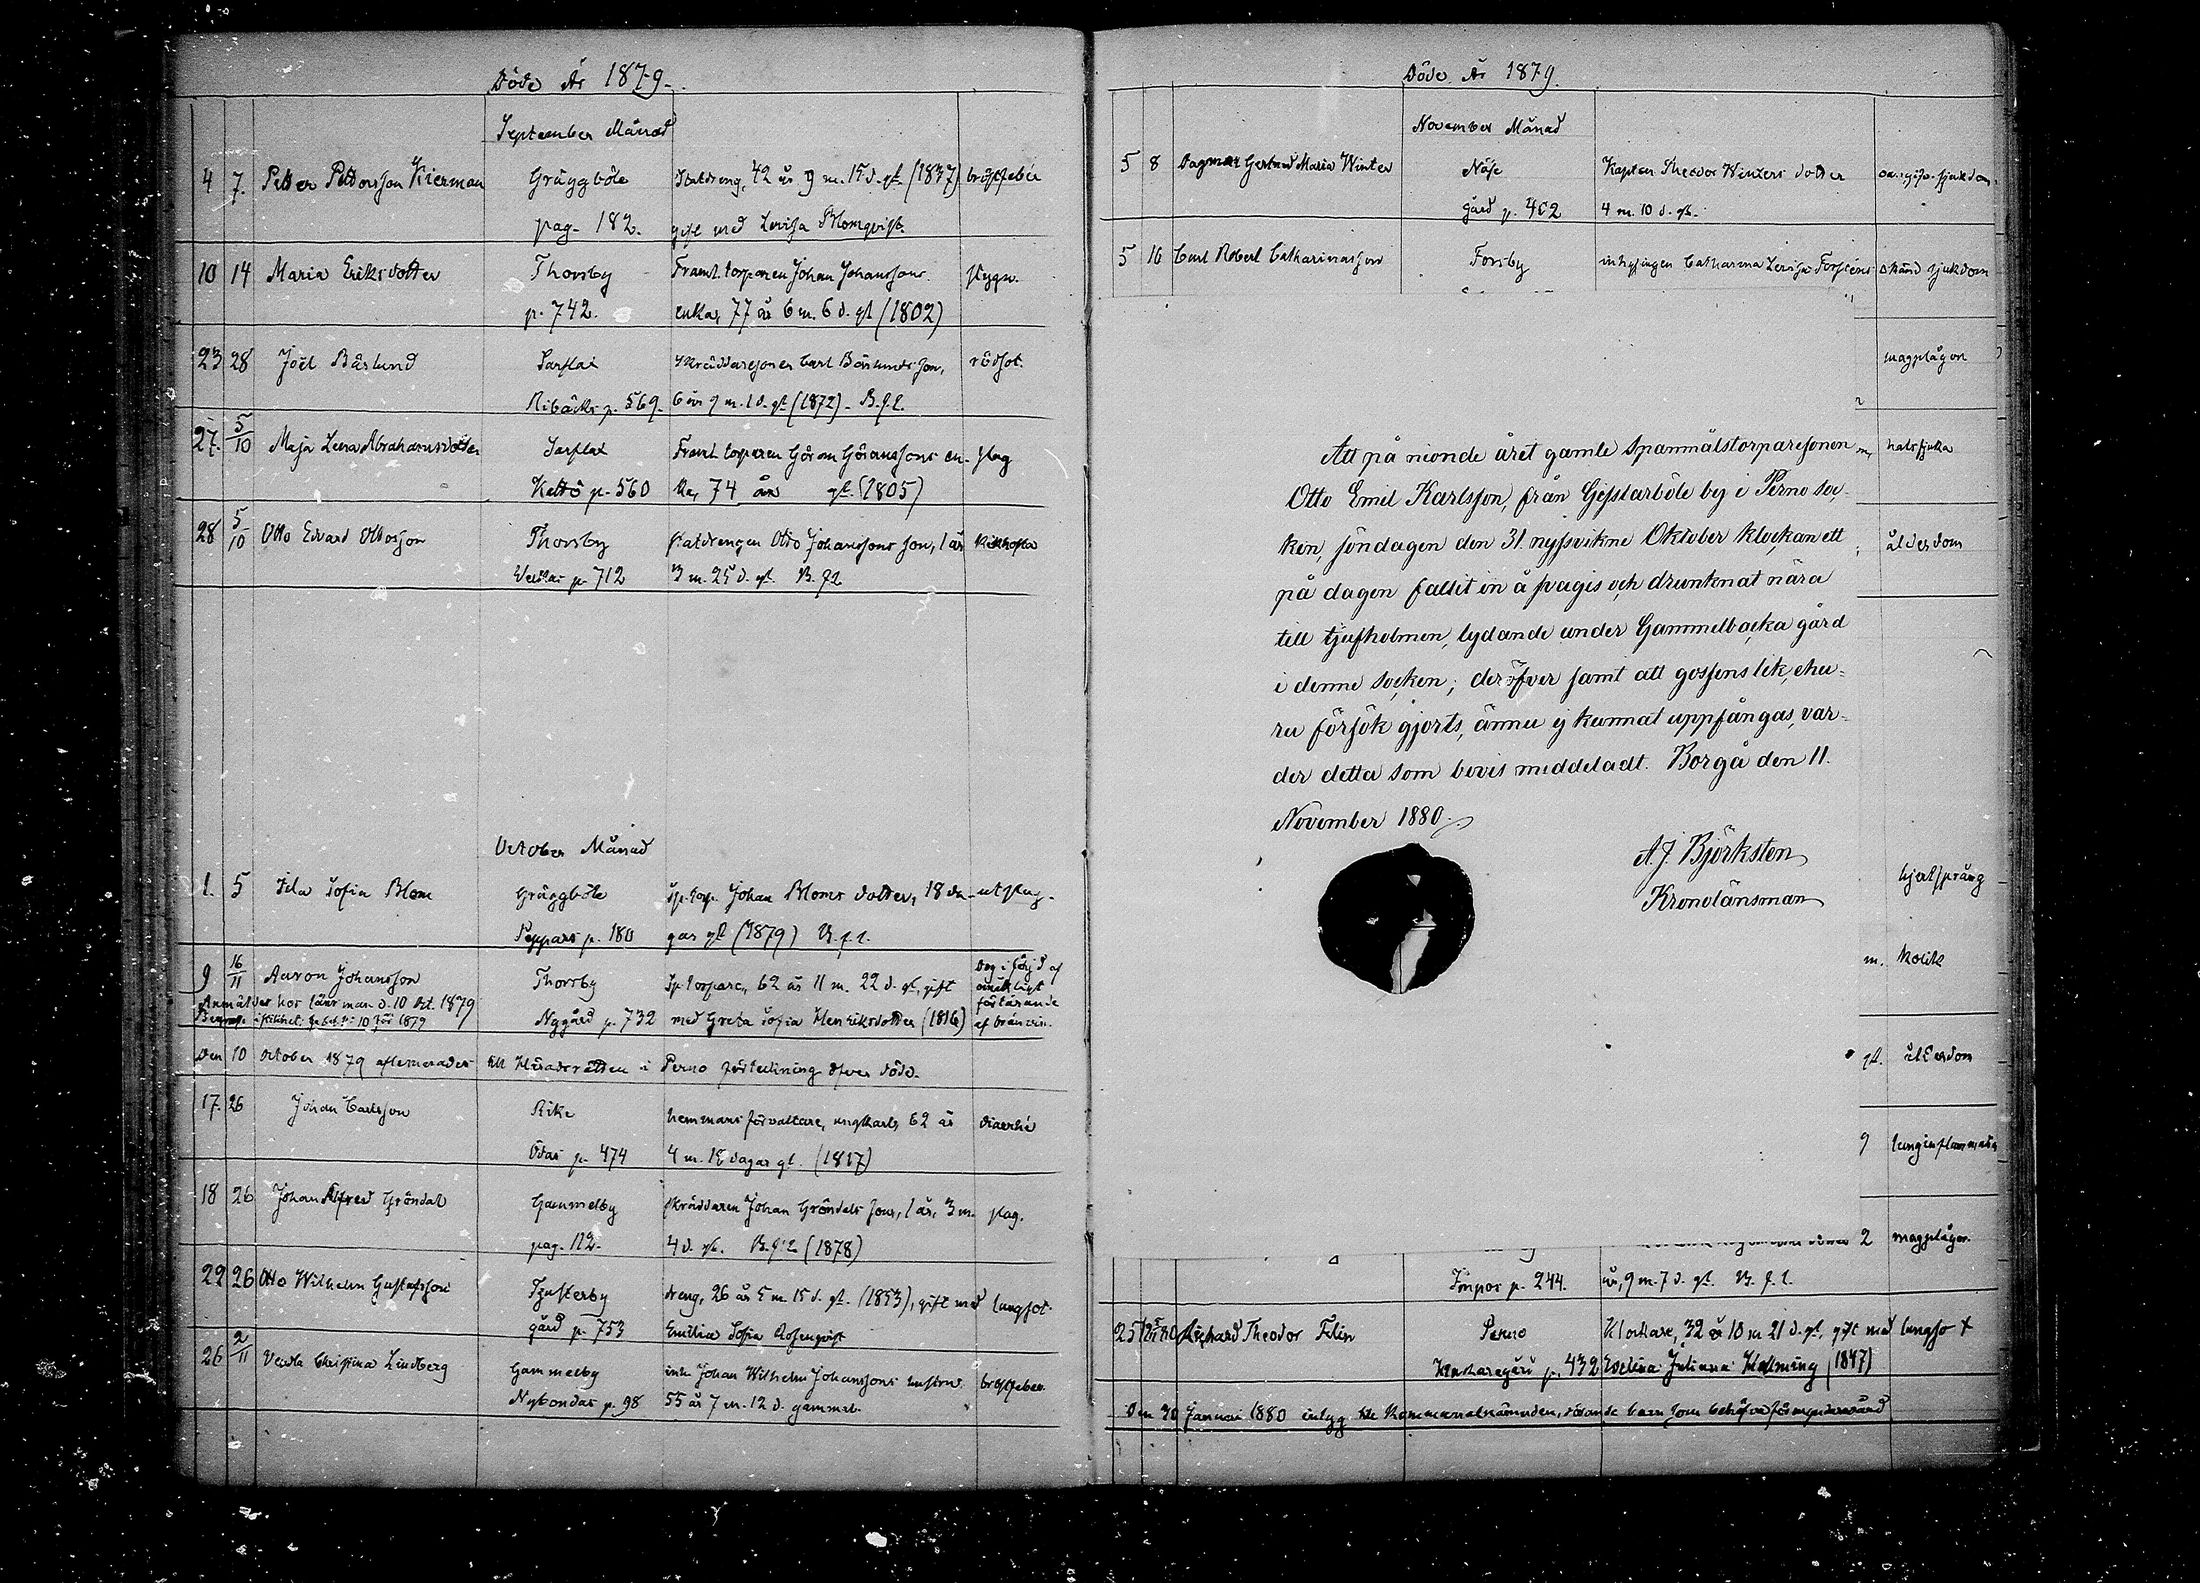 Döde År 1879.
September Månad
4 7. Petter Pettersson Kierman Gräggböle Statdreng, 42 år 9 m. 15 d. gl. (1837) bröstfeber
pag. 182. gift med Lovisa Blomqvist.
10 14 Maria Eriksdotter Thorsby Framl. torparen Johan Johanssons stygn.
p. 742. enka, 77 år 6 m. 6 d. gl (1802)
23 28 Joël Bärlund Sarflax skräddaresonen Carl Bärlunds son, rödsot.
Ribäcks p. 569. 6 år 9 m. 1 d. gl (1872) - B.f.l.
27. 5/10 Maja Lena Abrahamsdotter Sarflax Framl. torparen Göran Göranssons en- slag
Kettö p. 560 ka, 74 år gl. (1805)
28 5/10 Otto Edvard Ottosson Thorsby statdrengen Otto Johanssons son, 1 år kikhosta
p. 712 3 m. 25 d. gl. B. f. l.
October Månad
1. 5 Ida Sofia Blom Gräggböle Sp. torp. Johan Bloms dotter, 18 da- utslag.
Peppars p. 180 gar gl (1879) B. f. l.
9 16/11 Aaron Johansson Thorsby Sp. torpare, 62 år 11 m. 22 d. gl, gift Dog i följd af
omåttligt
förtärande
af bränvin.
Anmäldes hos länsman d. 10 Oct. 1879
Nygård p. 732 med Greta Sofia Henriksdotter (1816)
Den 10 October 1879 aflemnades till Häradsrätten i Perno förteckning öfver döde.
17. 26 Johan Carlsson Rike hemmans förvaltare, ungkarl, 62 år diarrhé
p. 474 4 m. 18 dagar gl. (1817)
18 26 Johan Alfred Gröndal Gammelby skräddaren Johan Gröndals son, 1 år, 3 m. slag.
pag. 112. 4 d. gl. B.f.l. (1878)
22 26 Otto Wilhelm Gustafsson Tjusterby dreng, 26 år 5 m 15 d. gl. (1853), gift med lungsot.
gård p. 753 Emilia Sofia Rosenqvist
26 2/11 Christina Lindberg Gammelby Johan Wilhelm Johanssons hustru bröstfeber
Nybondas p. 98 55 år 7 m. 12 d. gammal.
Döde År 1879.
November Månad
5 8 Dagmar Gertrud Maria Winter Näse Kapten Theodor Winters dotter sjukdom.
gård p. 402 4 m. 10 d. gl.
5 16 Carl Robert Catharinasson Forsby inhysingen Catharina Lovisa Forsténs okänd sjukdom
magplågor
halssjuka
ålderdom
Att på nionde året gamle spanmålstorparesonen
Otto Emil Karlsson, från Gislarböle by i Perno soc-
ken, söndagen den 31. nyssvikne Oktober klockan ett
på dagen fallit in å svagis och drunknat nära
till Tjufholmen, lydande under Gammelbacka gård
i denne socken; deröfver samt att gossens lik, ehu-
ru försök gjorts, ännu ej kunnat uppfångas, var-
der detta som bevis meddeladt. Borgå den 11.
November 1880.
A. J. Björksten
Kronolänsman
hjertsprång
m. kolik
gl. ålderdom
9 lunginflammation
2 magplågor.
p. 244. år, 9 m. 7 d. gl. B. f. l.
25 Richard Theodor Felin Perno Klockare, 32 år 10 m 21 d. gl, gift med lungsot
Klockaregård p. 432 Evelina Julianna Halming (1847)
Den 30 Januari 1880 inlyg. till Kommunalnämnden, rörande barn som behöfva förmynderevård